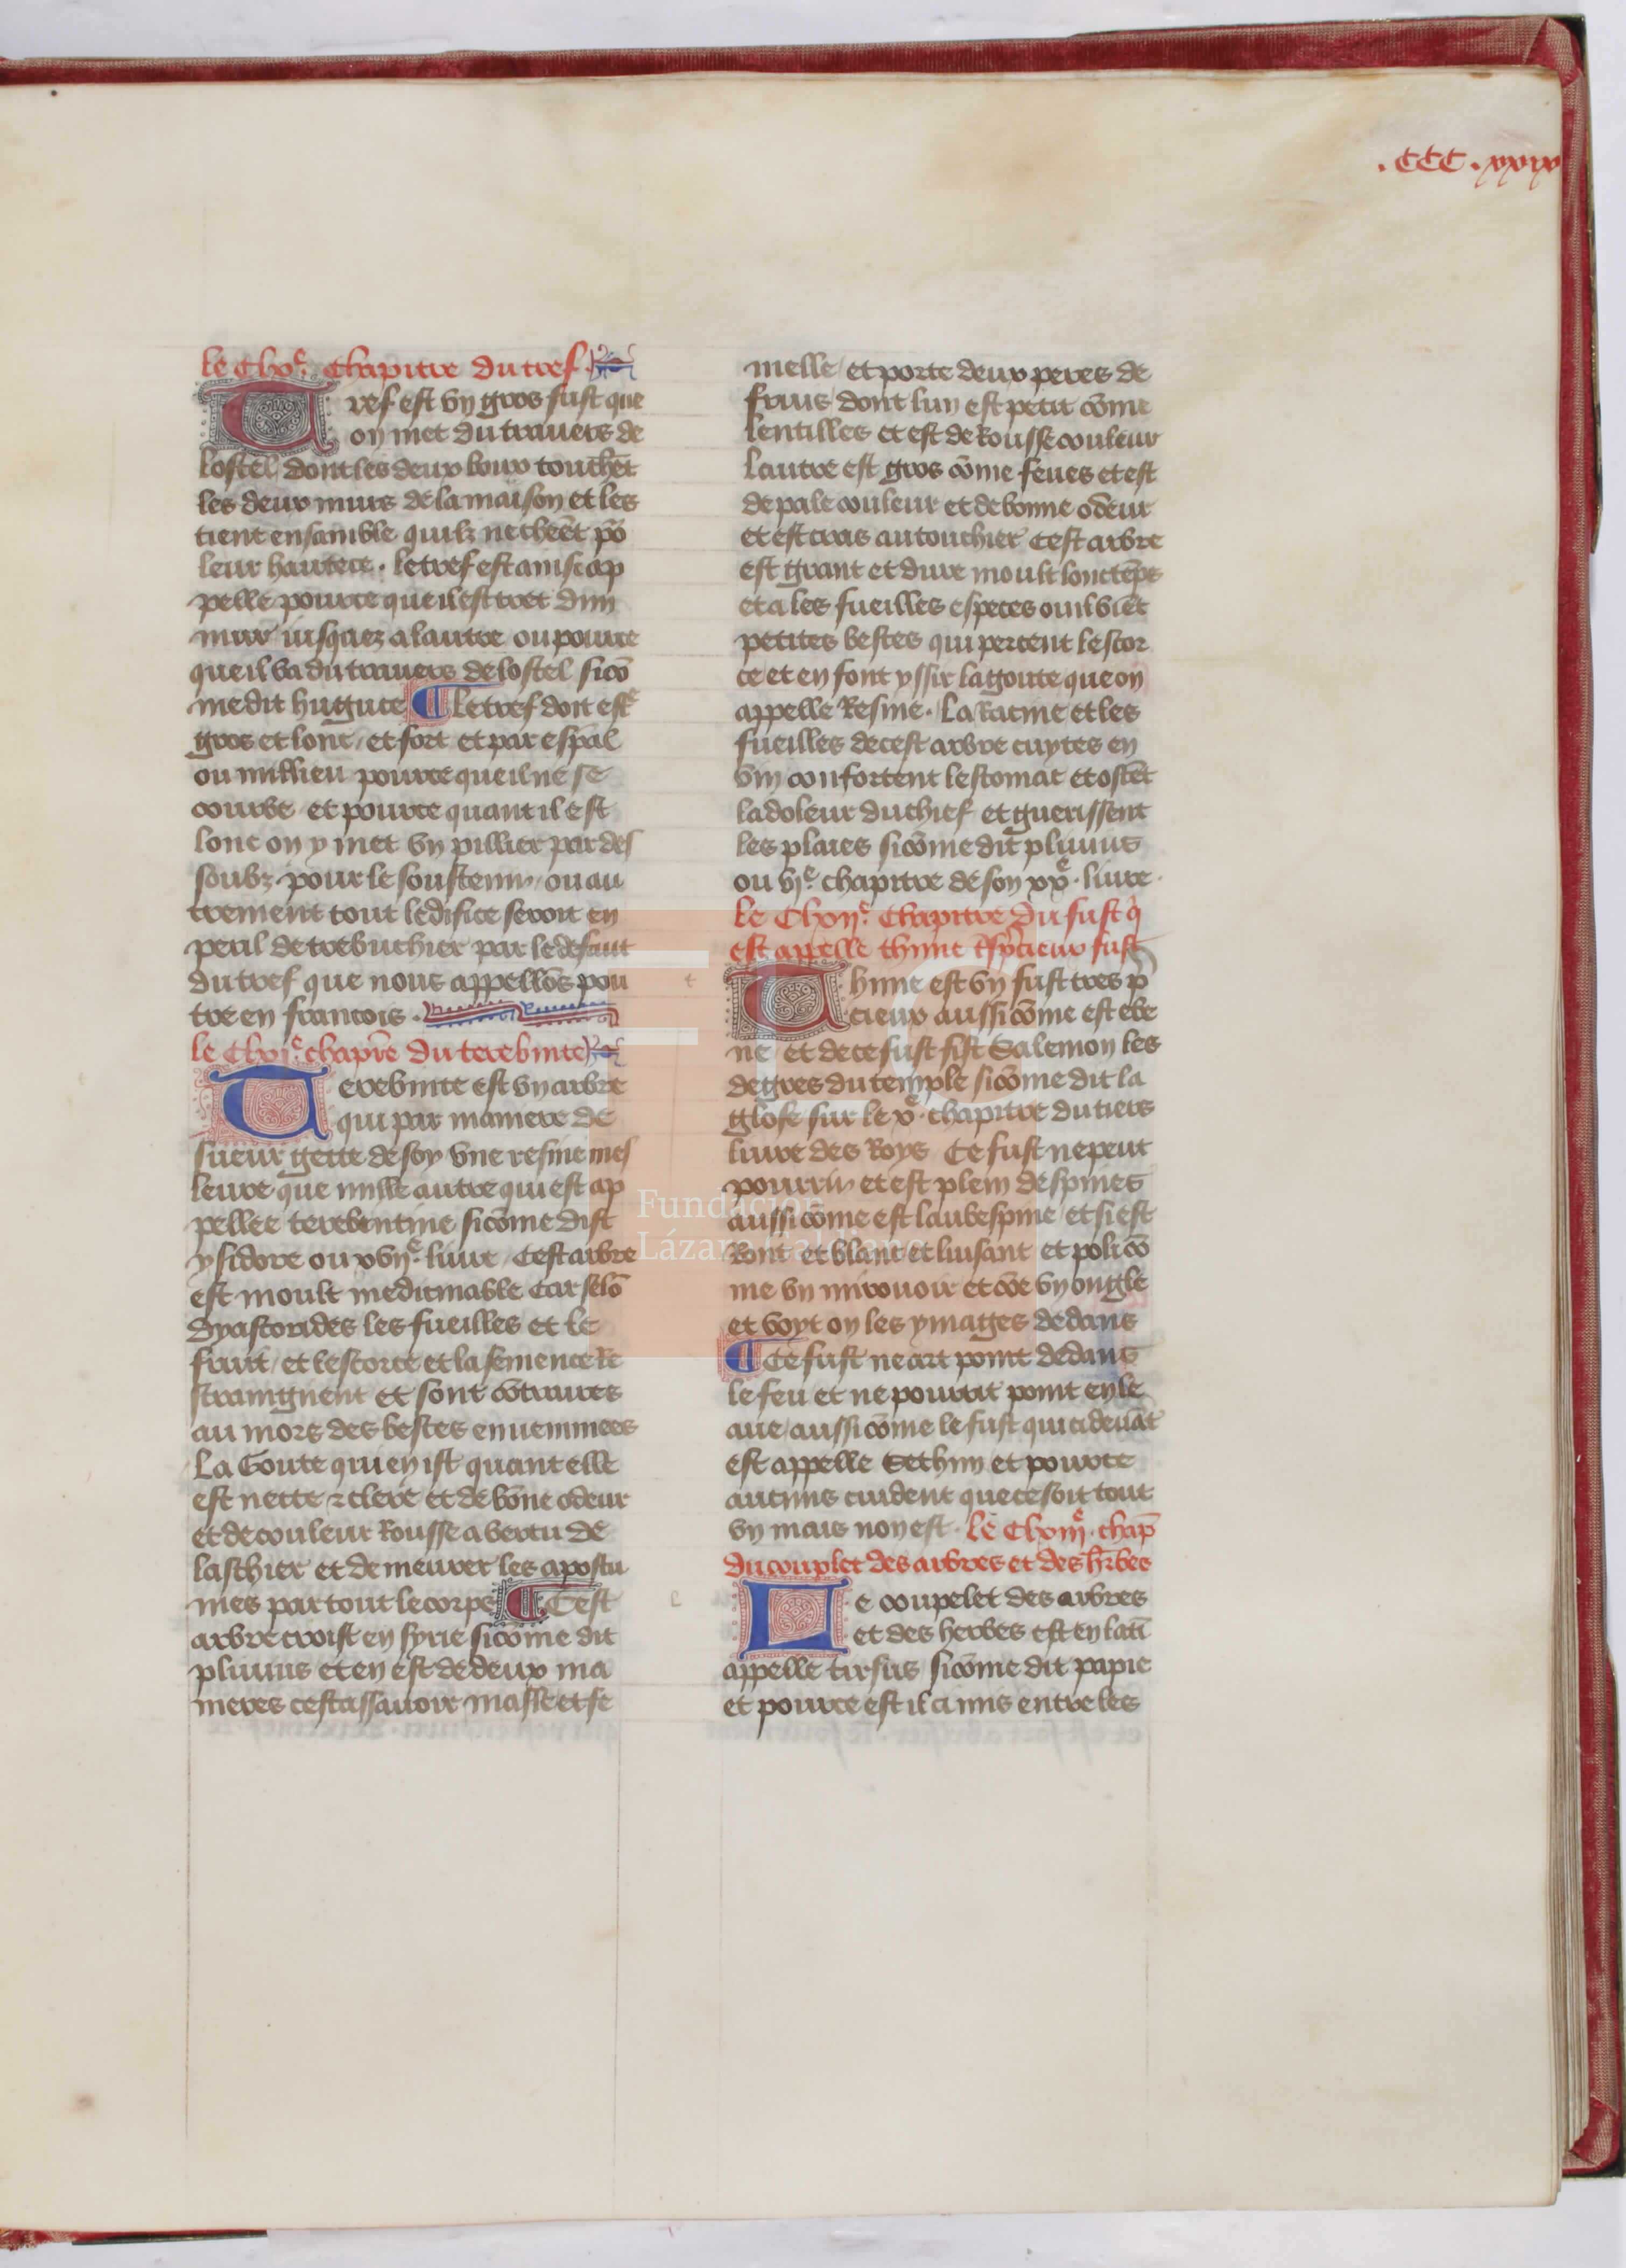 .CCC.xxix
le Clxv.e chapitre du tref.
Tref est vn gros fust que
on met du trauers de
lostel dont les deux boux touchēt
les deux murs de la maison et les
tient ensamble quilz ne cheēt po
leur hautece. le tref est ainsi ap
pelle pource que il est tret dun
mur iusquez a lautre ou pource
que il va du trauers de lostel sicō
me dit huguce le tref doit estre
gros et lonc / et fort et par espal
ou millieu pource que il ne se
courbe et pource quant il est
lonc on y met vn pillier par des
soubz pour le soustenir / ou au
trement tout ledifice seroit en
peril de trebuchier par le defaut
du tref que nous appellōs pou
tre en francois.
le Clxvi.e chapr̄e du terebinte
Terebinte est vn arbre
qui par maniere de
sueur gette de soy vne resine mel
leure que nulle autre qui est ap
pellee terebentine sicōme dist
ysidore ou xvii.e liure / Cest arbre
est moult medicinable car selō
dyascorides les fueilles et le
fruit / et lescorce et la semence re
straingnent et sont cōtraires
au mors des bestes enuenimees
La Goute qui en ist quant elle
est nette ⁊ clere et de bōne odeur
et de couleur Rousse a vertu de
laschier et de meurer les apostu
mes par tout le corps Cest
arbre croist en syrie sicōme dit
plinius et en est de deux ma
nieres cest assauoir masle et fe
melle / et porte deux peres de
fruis dont lun est petit cōme
lentilles et est de Rousse couleur
Lautre est gros cōme feues et est
de pale couleur et de bonne odeur
et est cras au touchier Cest arbre
est grant et dure moult lonc tēps
et a les fueilles especes ou il viēt
petites bestes qui percent lescor
ce et en font yssir la goute que on
appelle Resine. La Racine et les
fueilles de cest arbre cuytes en
vin confortent lestomac et ostēt
la doleur du chief et guerissent
les plaies sicōme dit plinius
ou vi.e chapitre de son xx.e liure.
le Clxvii.e Chapitre du fust q̄
est appelle thime
t
Thime est vn fust tres p̄
cieux aussi cōme est ebe
ne / et de ce fust fist Salemon les
degres du temple sicōme dit la
glose sur le x.e chapitre du tiers
liure des Roys Ce fust ne peut
pourrir et est plein despines
aussi cōme est laubespine / et si est
Ront et blanc et luisant et poli cō
me vn mirouoir et cōe vn ongle
et voyt on les ymages dedans
Ce fust ne art point dedans
le feu et ne pourrit point en le
aue / aussi cōme le fust qui ci deuāt
est appelle Sethim et pource
aucuns cuident que ce soit tout
vn mais non est. le Clxviii.e chap̄
du couplet des arbres et des h̄rbes
Le coupelet des arbres
et des herbes est en latī
appelle tirsus sicōme dit papie
et pource est il ci mis entre les
Fundación
Lázaro Galdiano